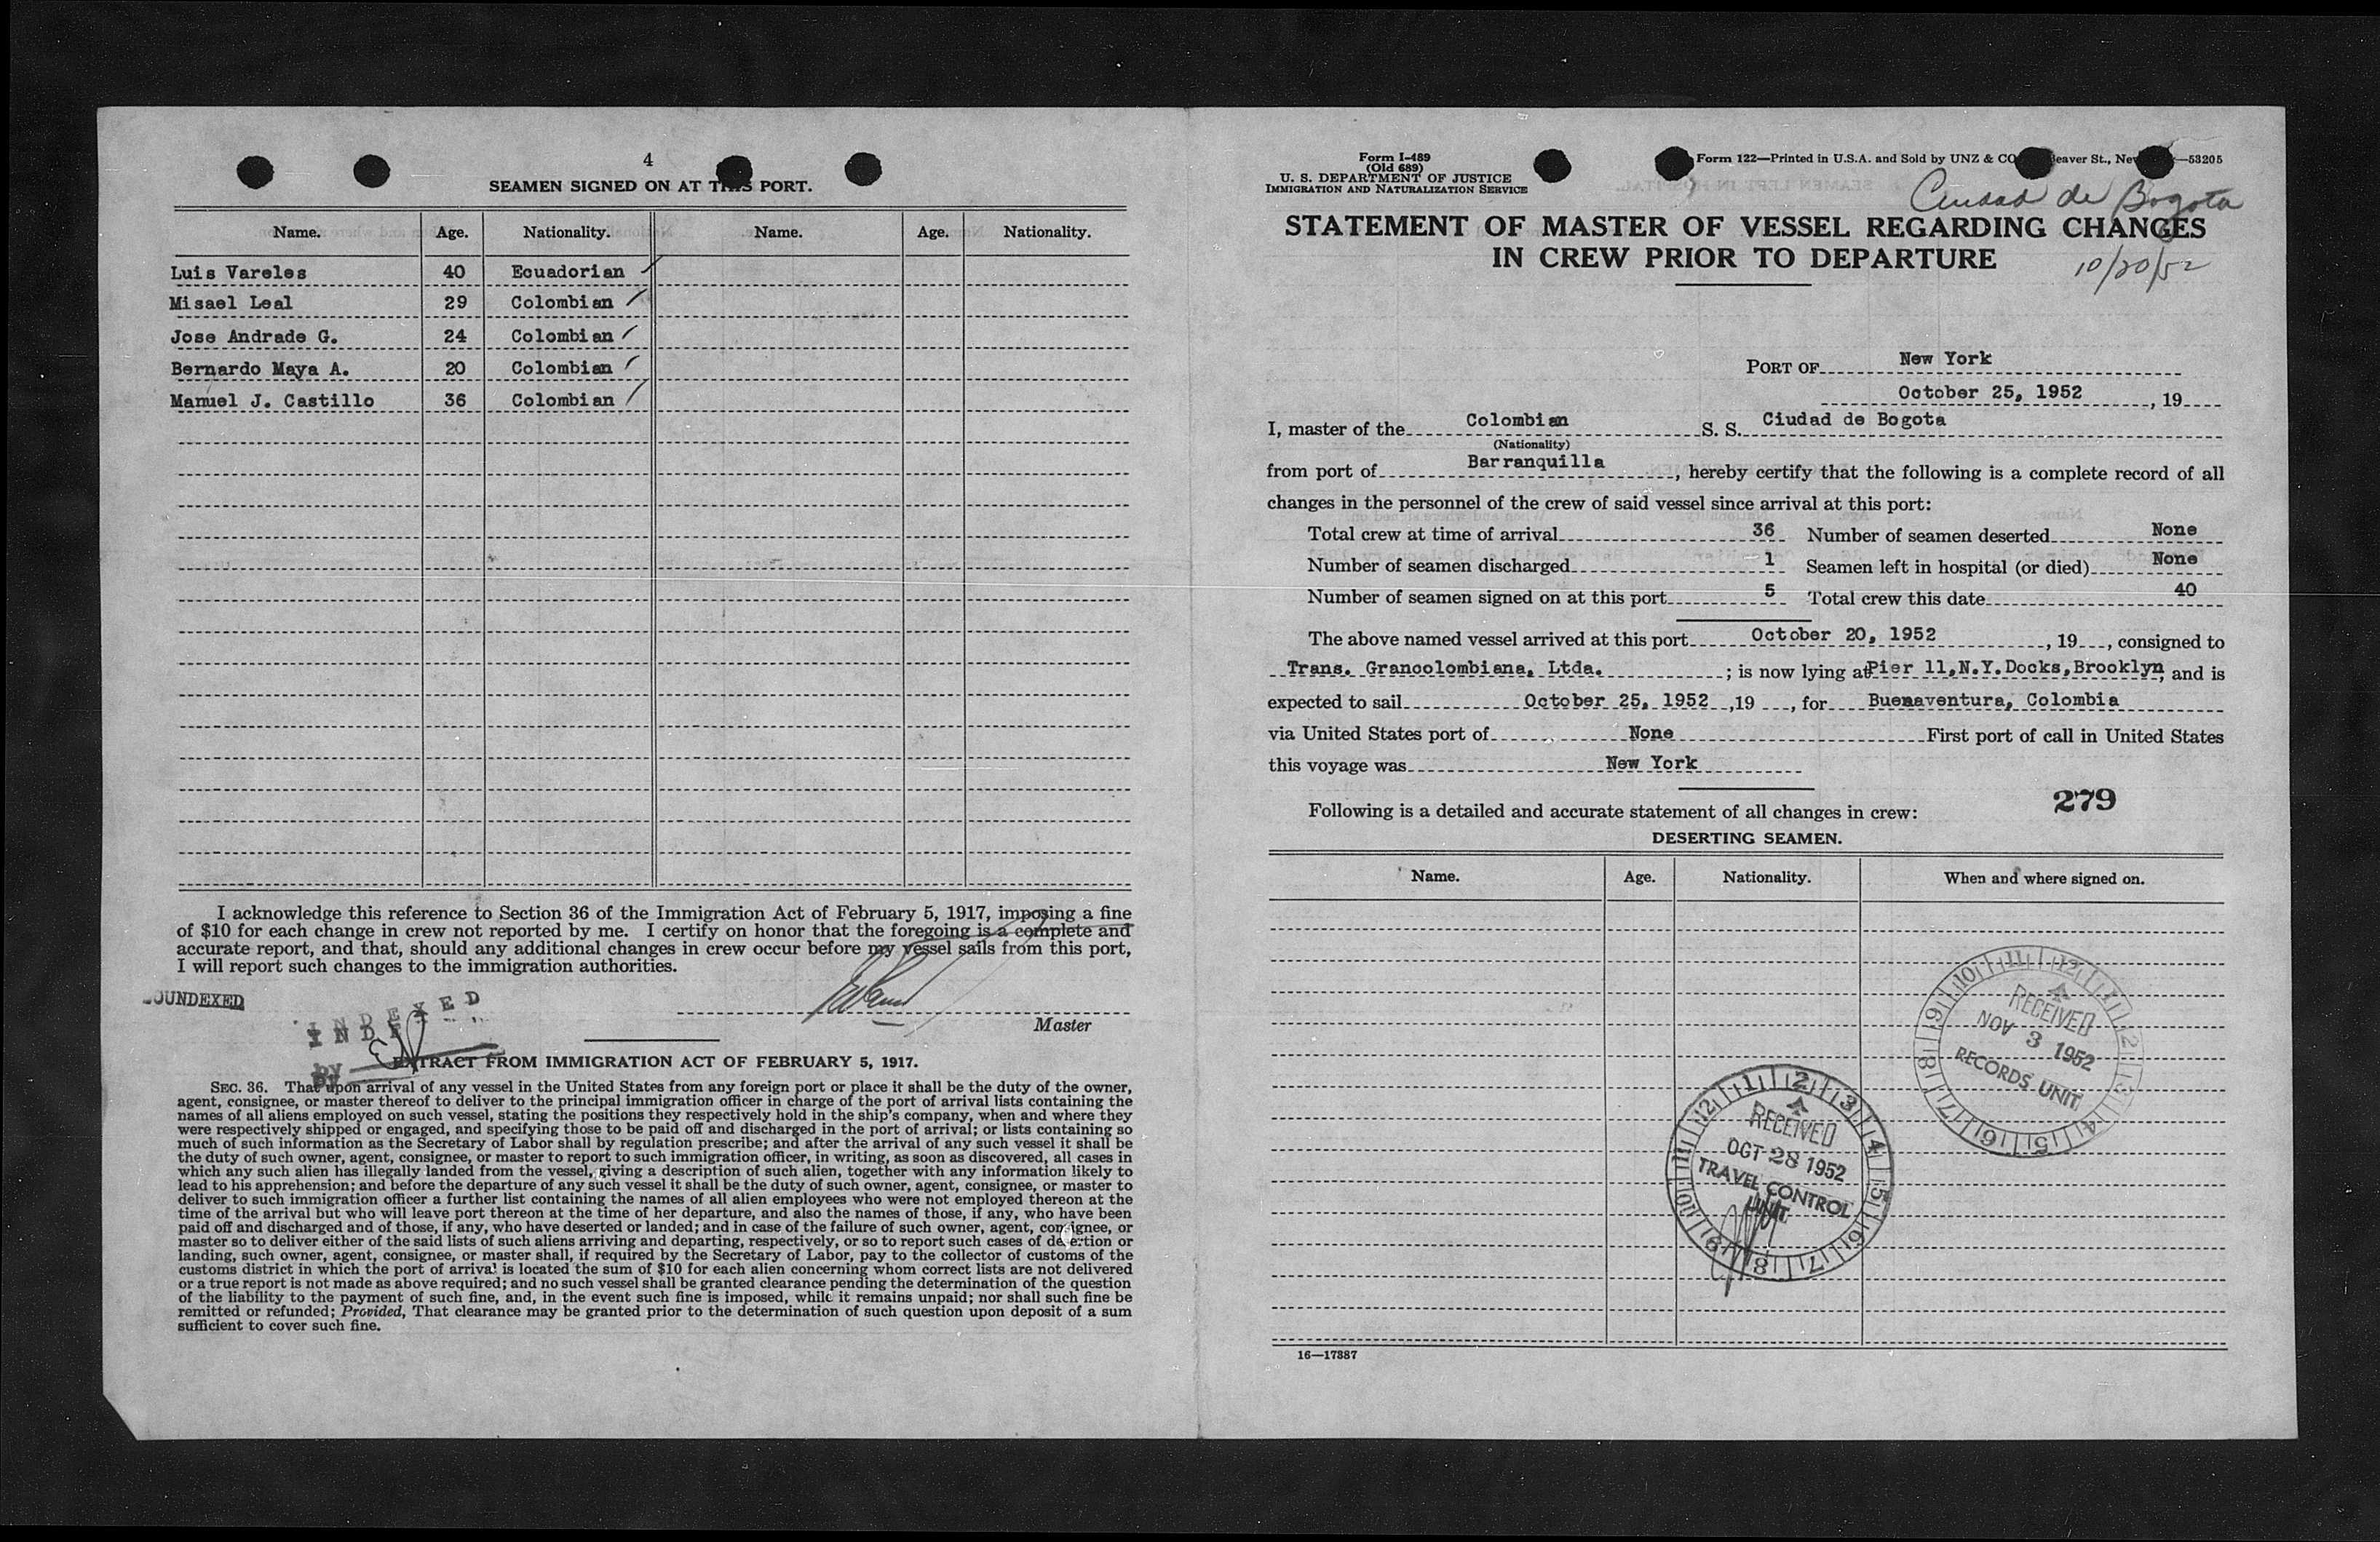 4
SEAMEN SIGNED ON AT THIS PORT.
Name. Age. Nationality. Name. Age. Nationality.
Luis Vareles 40 Ecuadorian
Misael Leal 29 Colombian
Jose Andrade G. 24 Colombian
Bernardo Maya A. 20 Colombian
Manuel J. Castillo 36 Colombian
I acknowledge this reference to Section 36 of the Immigration Act of February 5, 1917, imposing a fine
of $10 for each change in crew not reported by me. I certify on honor that the foregoing is a complete and
accurate report, and that, should any additional changes in crew occur before my vessel sails from this port,
I will report such changes to the immigration authorities.
SOUNDEXED
INDEXED
by
Master
EXTRACT FROM IMMIGRATION ACT OF FEBRUARY 5, 1917.
SEC. 36. That upon arrival of any vessel in the United States from any foreign port or place it shall be the duty of the owner,
agent, consignee, or master thereof to deliver to the principal immigration officer in charge of the port of arrival lists containing the
names of all aliens employed on such vessel, stating the positions they respectively hold in the ship's company, when and where they
were respectively shipped or engaged, and specifying those to be paid off and discharged in the port of arrival; or lists containing so
much of such information as the Secretary of Labor shall by regulation prescribe; and after the arrival of any such vessel it shall be
the duty of such owner, agent, consignee, or master to report to such immigration officer, in writing, as soon as discovered, all cases in
which any such alien has illegally landed from the vessel, giving a description of such alien, together with any information likely to
lead to his apprehension; and before the departure of any such vessel it shall be the duty of such owner, agent, consignee, or master to
deliver to such immigration officer a further list containing the names of all alien employees who were not employed thereon at the
time of the arrival but who will leave port thereon at the time of her departure, and also the names of those, if any, who have been
paid off and discharged and of those, if any, who have deserted or landed; and in case of the failure of such owner, agent, consignee, or
master so to deliver either of the said lists of such aliens arriving and departing, respectively, or so to report such cases of desertion or
landing, such owner, agent, consignee, or master shall, if required by the Secretary of Labor, pay to the collector of customs of the
customs district in which the port of arrival is located the sum of $10 for each alien concerning whom correct lists are not delivered
or a true report is not made as above required; and no such vessel shall be granted clearance pending the determination of the question
of the liability to the payment of such fine, and, in the event such fine is imposed, while it remains unpaid; nor shall such fine be
remitted or refunded; Provided, That clearance may be granted prior to the determination of such question upon deposit of a sum
sufficient to cover such fine.
Form I-489
(Old 689)
U. S. DEPARTMENT OF JUSTICE
IMMIGRATION AND NATURALIZATION SERVICE
Form 122—Printed in U.S.A. and Sold by UNZ & CO eaver St., New —53205
Ciudad de Bogota
STATEMENT OF MASTER OF VESSEL REGARDING CHANGES
IN CREW PRIOR TO DEPARTURE
10/20/52
PORT OF New York
October 25, 1952, 19
I, master of the Colombian S. S. Ciudad de Bogota
(Nationality)
from port of Barranquilla, hereby certify that the following is a complete record of all
changes in the personnel of the crew of said vessel since arrival at this port:
Total crew at time of arrival 36 Number of seamen deserted None
Number of seamen discharged 1 Seamen left in hospital (or died) None
Number of seamen signed on at this port 5 Total crew this date 40
The above named vessel arrived at this port October 20, 1952, 19, consigned to
Trans. Grancolombiana, Ltda.; is now lying at Pier 11,N.Y.Docks,Brooklyn, and is
expected to sail October 25, 1952, 19, for Buenaventura, Colombia
via United States port of None First port of call in United States
this voyage was New York
279
Following is a detailed and accurate statement of all changes in crew:
DESERTING SEAMEN.
Name. Age. Nationality. When and where signed on.
RECEIVED
NOV 3 1952
RECORDS UNIT
RECEIVED
OCT 28 1952
TRAVEL CONTROL
UNIT
16—17387